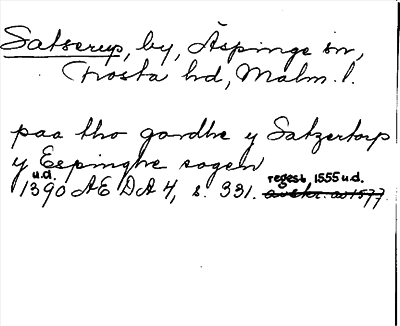 Satserup, by, Äspinge sn,
Frosta hd, Malm. l.
paa tho gardhe y Satzertorp
y Espinghe sogen
u.d. regest 1555 u.d.
1390 ÆDA 4, s. 331. avskr. av 1577.